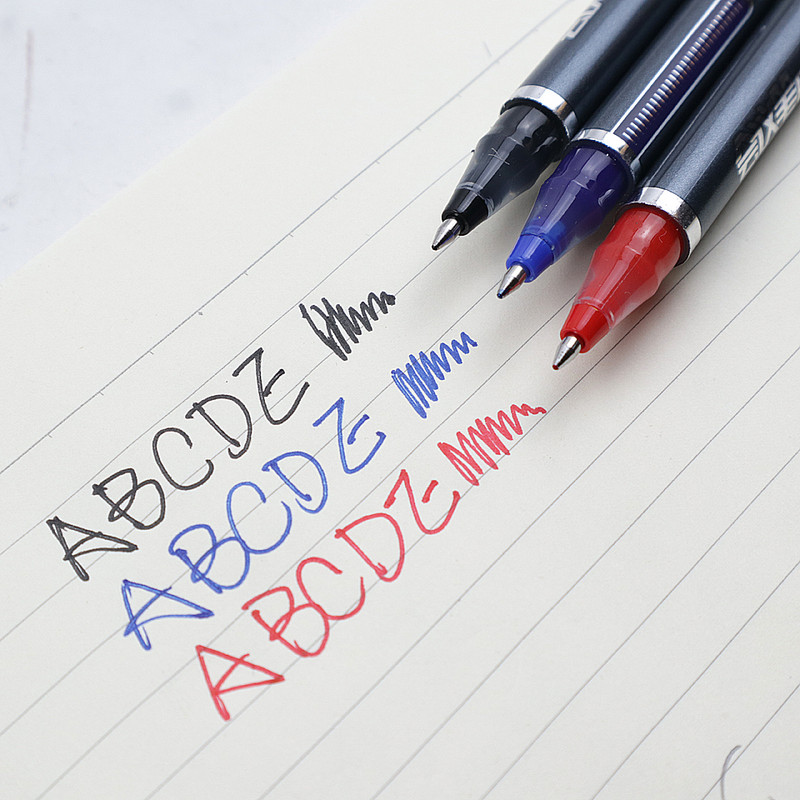 ABCDE
ABCDE
ABCDE